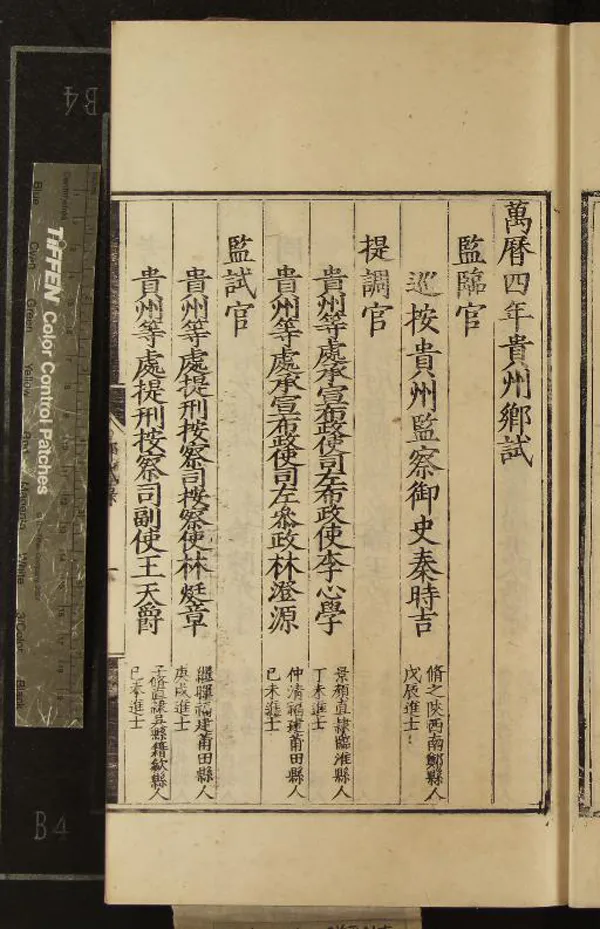 萬曆四年貴州鄉試
監臨官
巡按貴州監察御史秦時吉
脩之陝西南鄭縣人
戊辰進士
提調官
貴州等處承宣布政使司左布政使李心學
景顏直隸臨淮縣人
丁未進士
貴州等處承宣布政使司左叅政林澄源
仲清福建莆田縣人
己未進士
監試官
貴州等處提刑按察司按察使林烶章
繼暉福建莆田縣人
庚戌進士
貴州等處提刑按察司副使王天爵
子脩直隸吳縣籍歙縣人
進士
B4
TIFFEN Color Control Patches
Blue
Green
Yellow
Magenta
White
3/Color
Black
B4